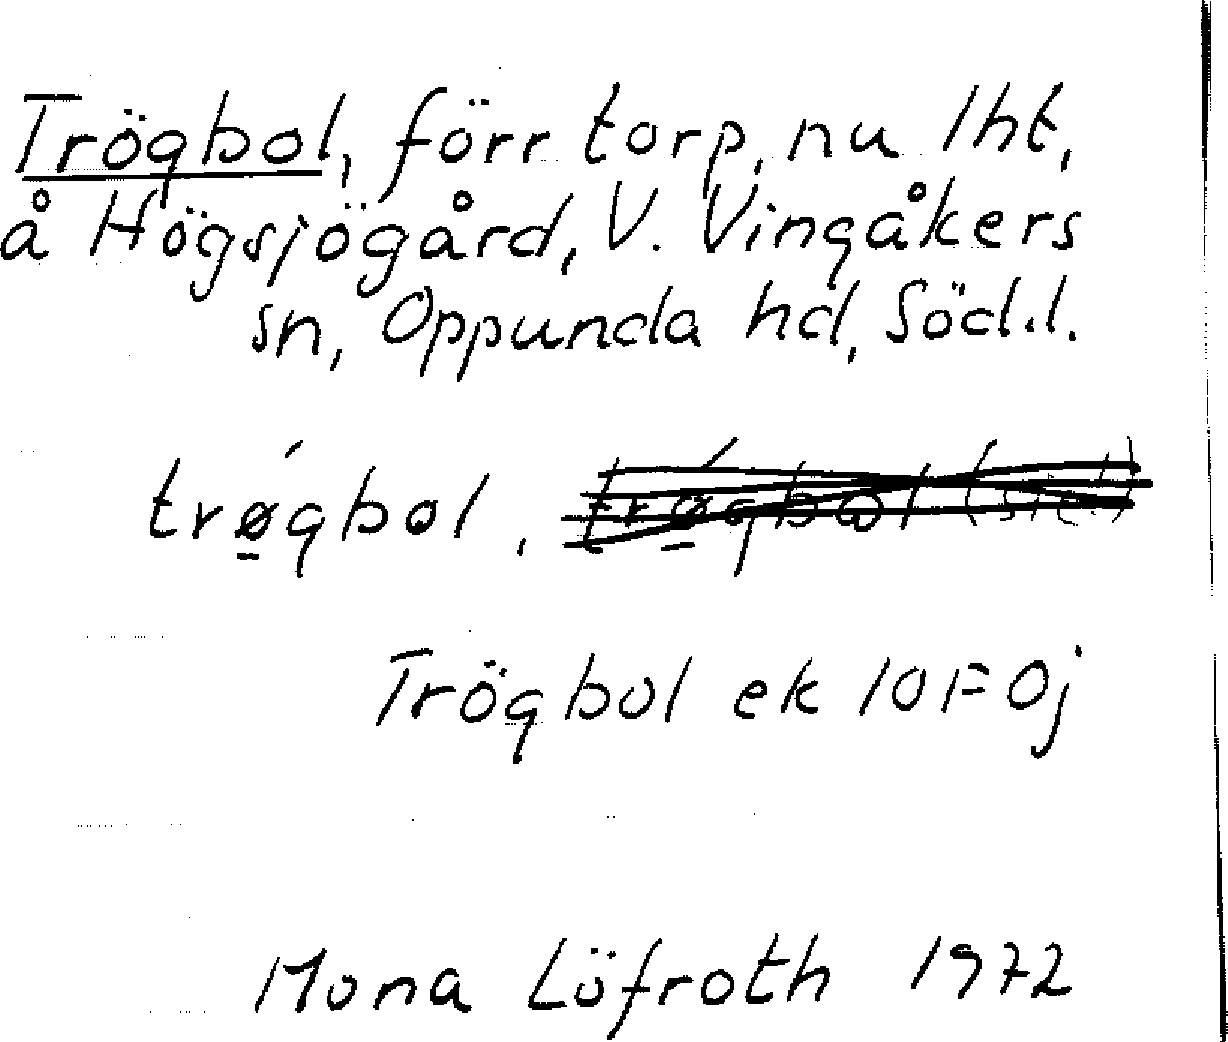 Trögbol, förr torp, nu lht,
å Högsjögård, V. Vingåkers
sn, Oppunda hd, Södml.
trǿ̲gbol,
Trögbol ek 10F0j
Mona Löfroth 1972